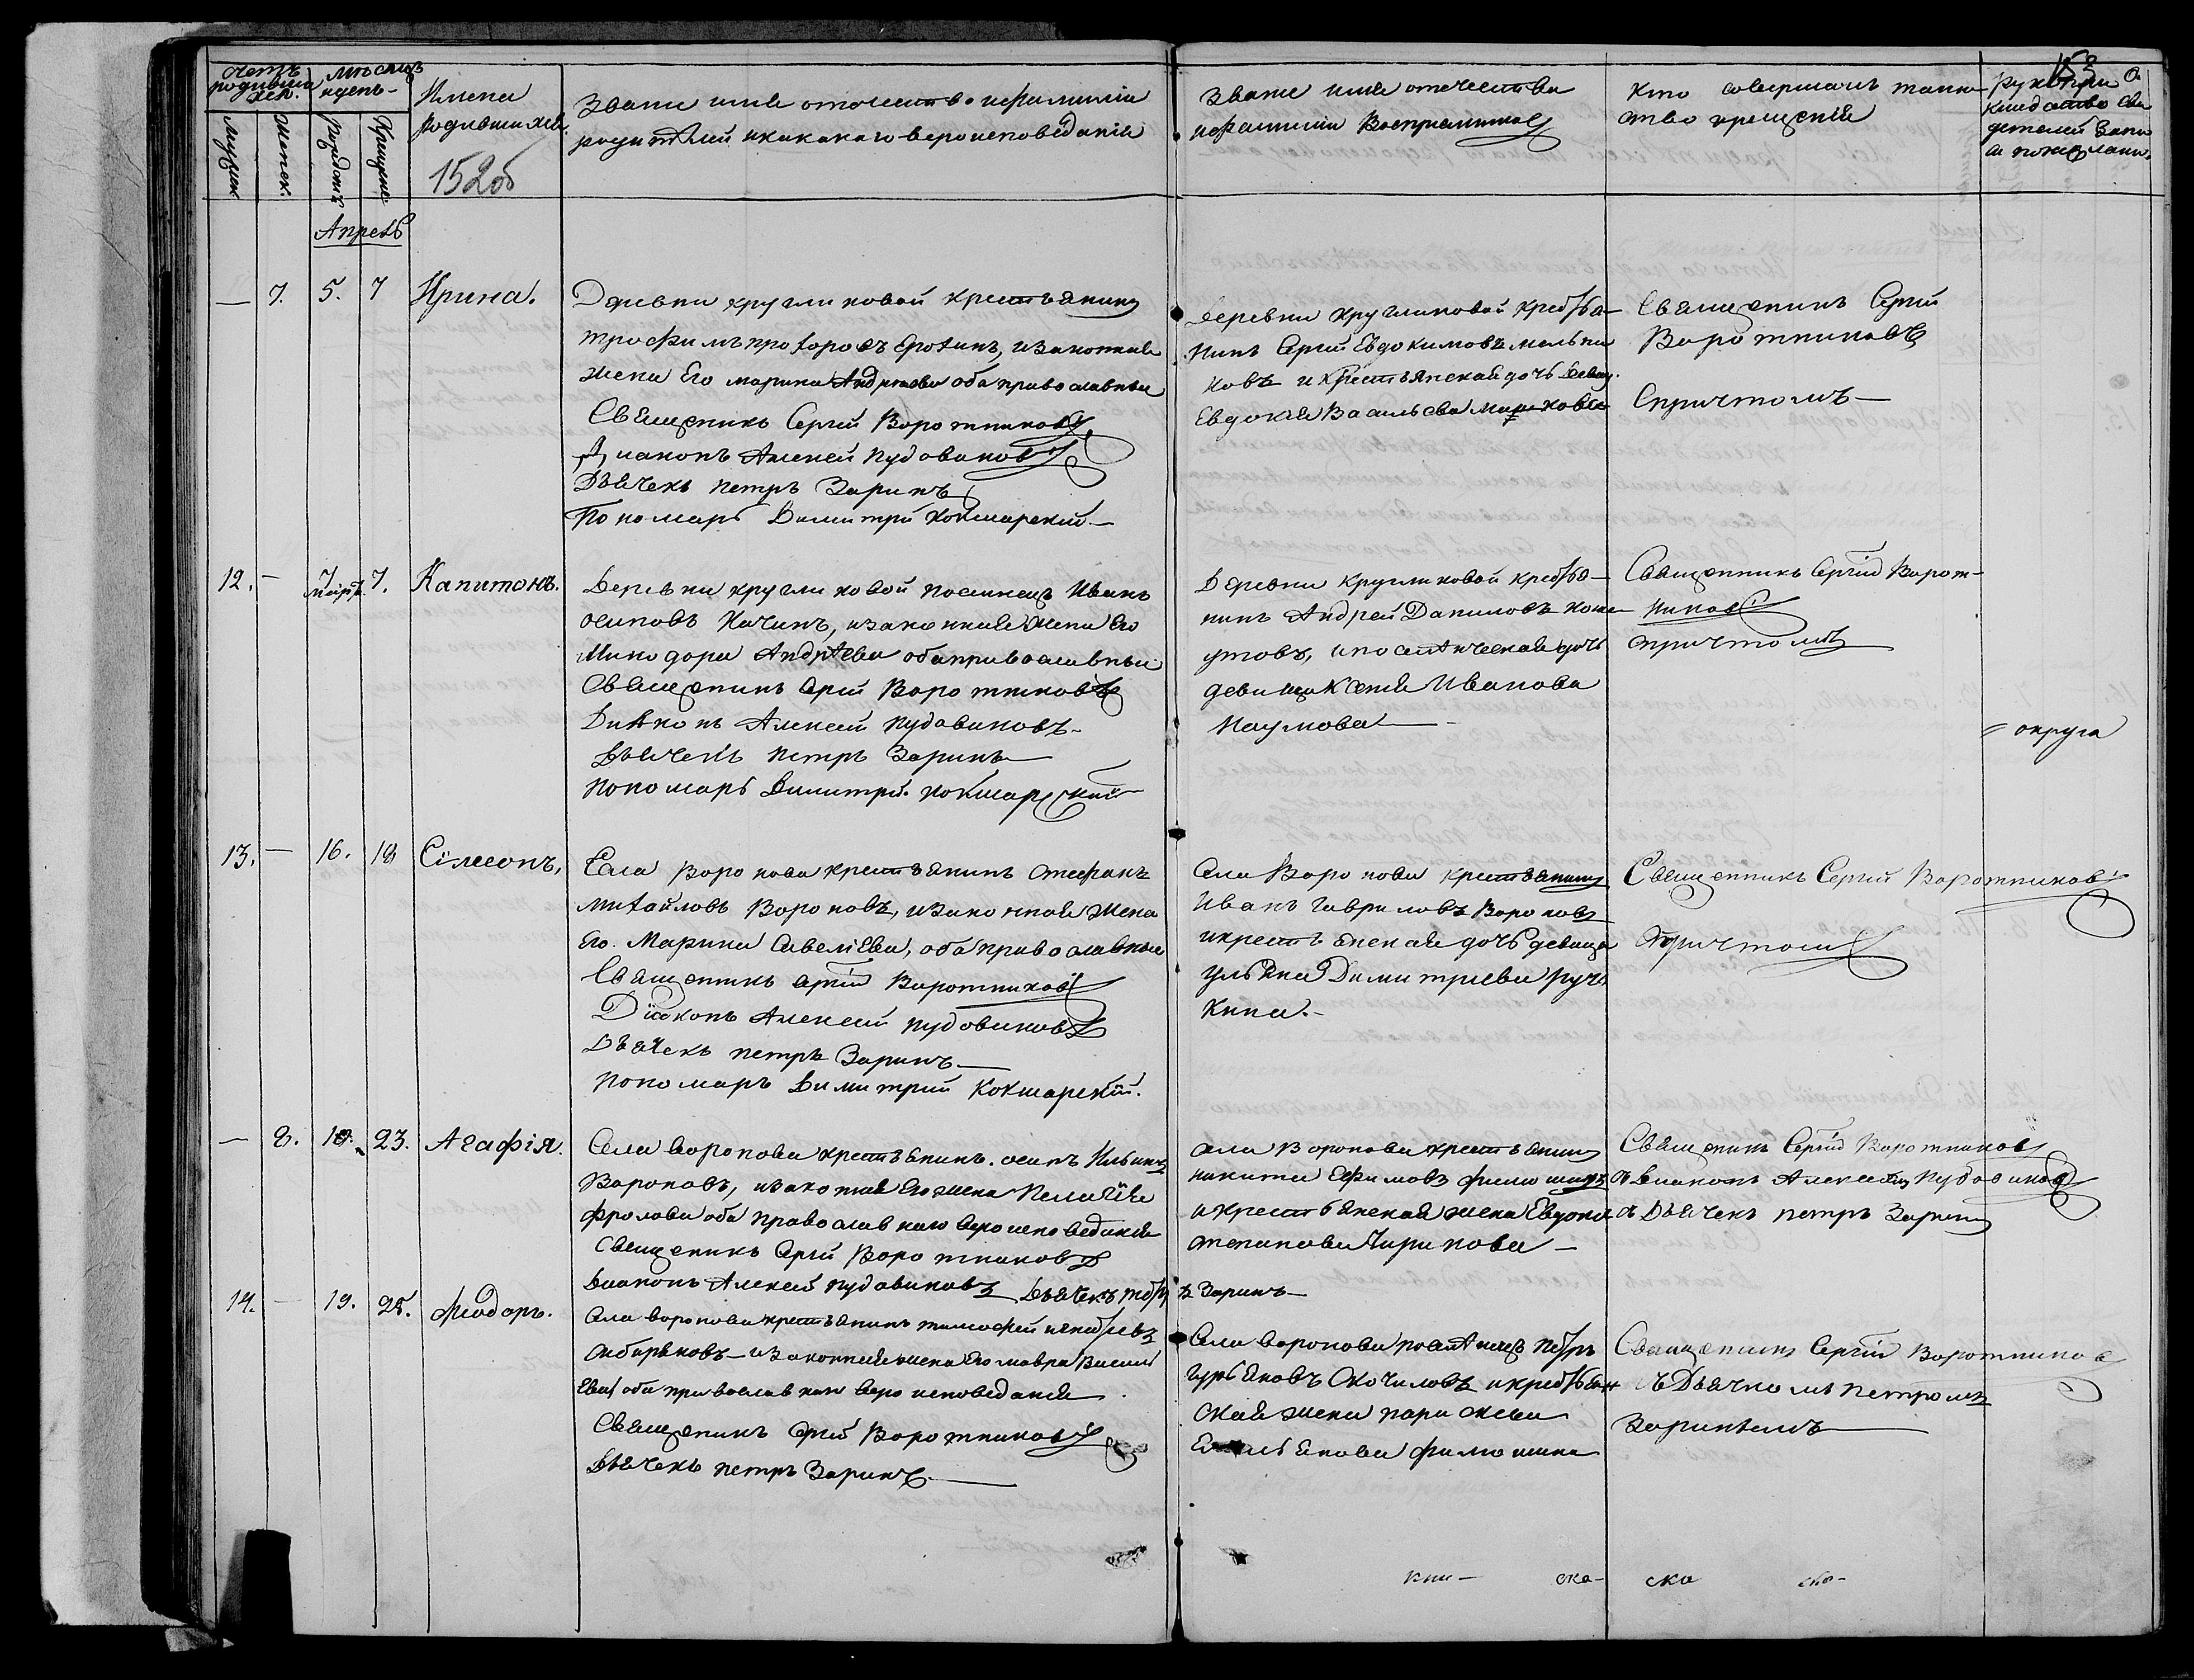 Счетъ родившихся.
Мужск.
Женск.
Мѣсяцъ и день
Рожденія
Крещенія
Имена родившихся.
152об
Званіе имя отечество и фамилія
родителей и какого вероисповеданія
Званіе имя отечество
и фамилія Восприемников
Кто совершалъ таин-
ство крещенія
153
Рукопри
кладство сви
детелей запи
си по желани.
Апрель
— 7. 5. 7 Ирина.
Деревни кругликовой крестьянинъ
трофимъ прохоровъ Ерохинъ, изаконная
жена Его марина Андреева оба православныи
Священикъ Сергiй Воротниковъ
Диаконъ Алексей пудовиковъ
Дьячекъ петръ Заринъ
Пономарь Димитрiй кокшарскiй —
Деревни кругликовой крестьа-
нинъ Сергiй Евдокимовъ мельни
ковъ и крестьянская дочь девиц.
Евдокия Васильева
Священикъ Сергiй
Воротниковъ
Спричтомъ —
12. — 7 марта 7. Капитонъ.
Деревни кругликовой поселенецъ Иванъ
осиповъ Качинъ, изаконная жена Его
Минодора Андреева оба православныи
Священикъ Сергiй Воротниковъ
Диаконъ Алексей пудовиковъ —
Дьячекъ петръ Заринъ —
пономарь Димитрiй кокшарскiй
Деревни кругликовой кресть-
нинъ Андрей Даниловъ коше
утовъ, и поселенческая дочь
девица Ксения Иванова
Наумова —
Священникъ Сергiй Ворот-
никовъ
спричтомъ
= округа
13. — 16. 18 Сiмеонъ,
Села Воронова крестьянинъ Стефанъ
михайловъ Вороновъ, изаконная жена
Его. Марина Савелiева, оба православные
Священникъ Сергiй Воротниковъ
Дiаконъ Алексей пудовиковъ
Дьячекъ петръ Заринъ —
пономарь Димитрiй Кокшарскiй.
Села Воронова крестьянинъ
Иванъ Гавриловъ Вороновъ
и крестьянская дочь девица
ульяна Димитриева руч
кина. —
Священникъ Сергiй Воротниковъ
спричтомъ
— 8. 18. 23. Агафiя.
Села Воронова крестьянинъ. осипъ Ильинъ
Вороновъ, изаконная Его жена Пелагiя
фролова оба православнаго вероисповедания
Священикъ Сергiй Воротниковъ
Диаконъ Алексей пудовиковъ Дьячекъ петръ Заринъ —
села Воронова крестьянинъ
никита Ефимовъ филюшинъ
и крестьянская жена Евдокия
степанова Чиринова —
Священикъ Сергiй Воротниковъ
съ Диакономъ Алексеемъ пудовиков
съ Дьячекъ петръ Заринъ
14. — 19. 25. Феодоръ.
села воронова крестьянинъ тимофей
Сибиряковъ — изаконная жена Его мавра Васил
Ева оба православнаго вероисповедания
Священикъ Сергiй Воротниковъ
Дьячекъ петръ Заринъ —
Села Воронова поселенецъ петръ
гурьяновъ Скочиловъ и крестьян
ская жена параскева
Емельянова филюшина
Священикъ Сергiй Воротников
съ Дьячкомъ петромъ
Заринымъ —
кни — ска — ска ска —